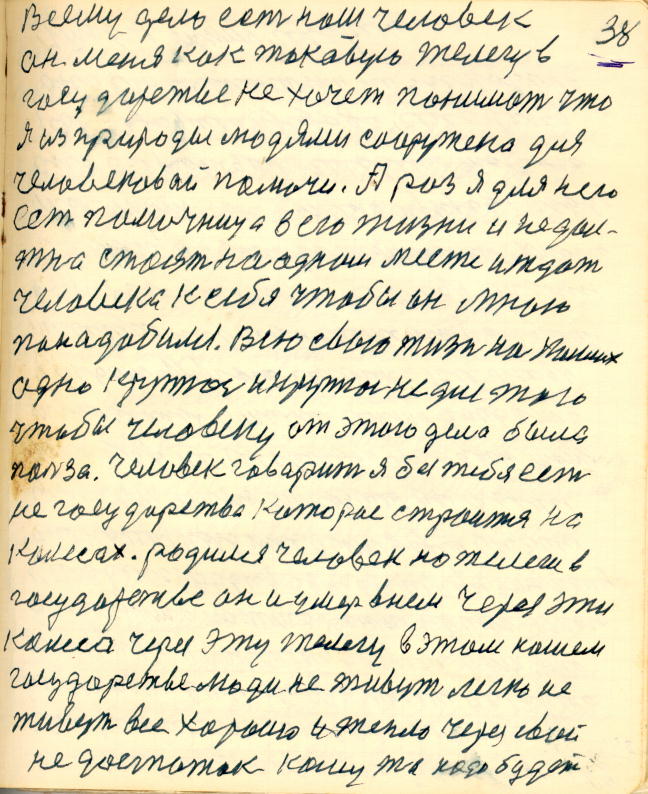 38
Всему дело ест наш человек
он меня как такавую телегу в
государстве не хочет понимат что
я из природы людями сооружена для
человековай помочи. А раз я для него
ест помочница в его жизни и недол-
жна стоят на одном месте и ждат
человека к себя чтобы он мною
понадобился. Всю свою жизн на
одно кружтос и кружтос не для того
чтобы человеку от этого дела была
полза. Человек говарит я без тебя ест
не государства которае строится на
колесах. родился человек на телеги в
государстве он и умер в нем Через эти
колеса через эту телегу в этом нашем
государстве люди не живут легко не
живут все хорошо и тепло через свой
не достаток кому то надо будет